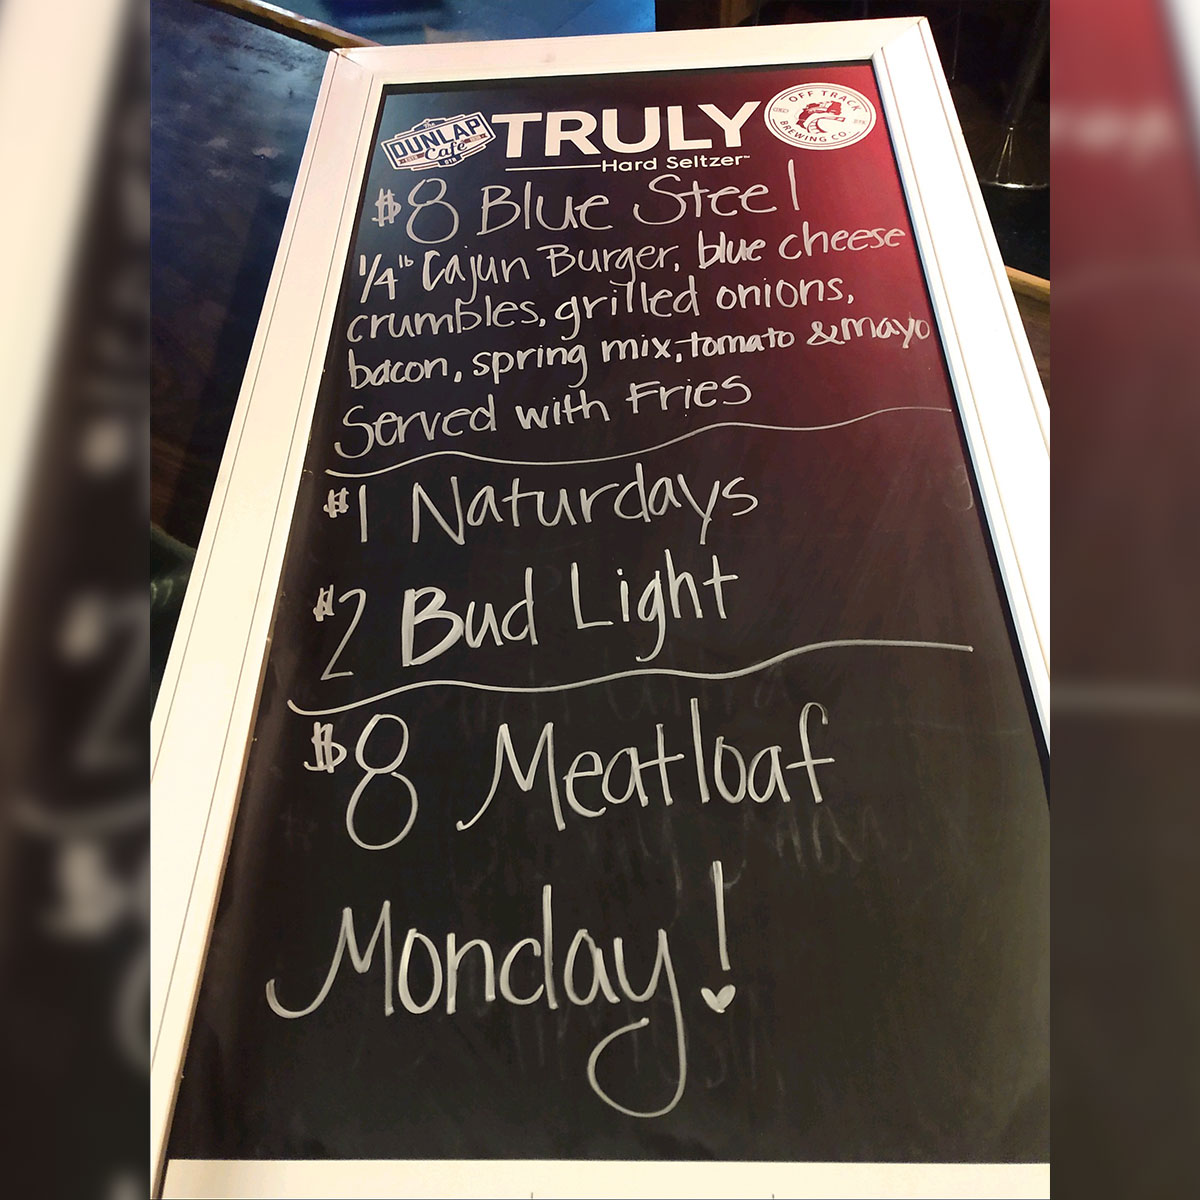 The
DUNLAP
Cafe
OTR
TRULY
Hard Seltzer
OFF TRACK
BREWING CO.
$8 Blue Steel
1/4 lb Cajun Burger, blue cheese
crumbles, grilled onions,
bacon, spring mix, tomato & mayo
Served with Fries
$1 Naturdays
$2 Bud Light
$8 Meatloaf
Monday!